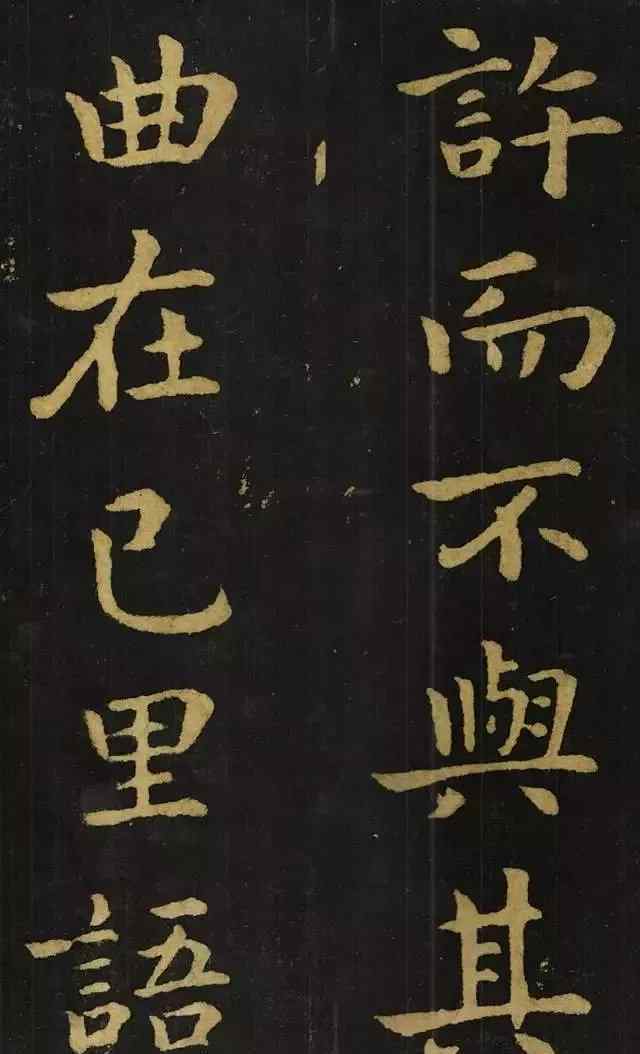 許而不與其
曲在已里語